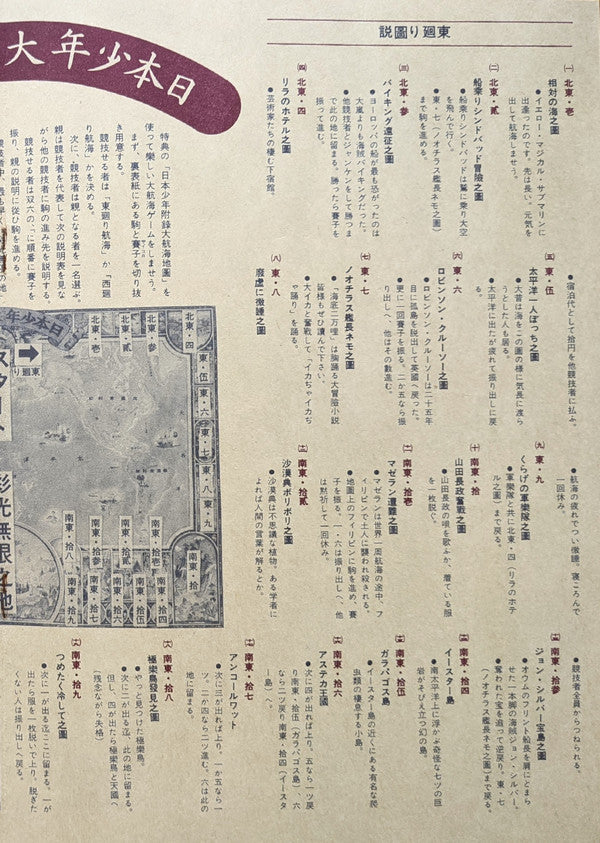 東廻り圖説
(一) 北東・壱
相対の海之圖
●イエロー・マジカル・サブマリンに
出逢ったのです。先は長い。元気を
出して航海しませう。
(二) 北東・貳
船乗りシンドバッド冒險之圖
●船乗りシンドバッドは鷲に乗り大空
を飛んで行く。
●東・七(ノオチラス艦長ネモ之圖)
まで駒を進める。
(三) 北東・参
バイキング遠征之圖
●ヨーロッパの船が最も恐がったのは
大嵐よりも海賊バイキングだった。
●他競技者とジャンケンをして勝つま
で此の地に留まる。勝つたら賽子を
振って進む。
(四) 北東・四
リラのホテル之圖
●芸術家たちの棲む下宿館。
●宿泊代として拾円を他競技者に払ふ。
(五) 東・伍
太平洋一人ぼっち之圖
●大昔は海をこの圖の様に気長に渡ら
うとした人も居る。
●太平洋に出たが疲れて振り出しに戻
る。
(六) 東・六
ロビンソン・クルーソー之圖
●ロビンソン・クルーソーは二十五年
目に孤島を脱出して英國へ戻った。
●更に一回賽子を振る。二か五なら振
り出しへ 他はその数進む。
(七) 東・七
ノオチラス艦長ネモ之圖
●「海底二万哩」は胸踊る大冒險小説
皆様もぜひ讀んで下さい。
●大イカと奮戰して「イカぢゃイカぢ
ゃ踊り」を踊る。
(八) 東・八
廢虚に微睡之圖
●航海の疲れでつい微睡。寝ころんで
一回休み。
(九) 東・九
くらげの軍樂隊之圖
●軍樂隊と共に北東・四(リラのホテ
ル之圖)まで戻る。
(十) 南東・拾
山田長政奮戰之圖
●山田長政の唄を歌ふか、着ている服
を一枚脱ぐ。
(十一) 南東・拾壱
マゼラン遭難之圖
●マゼランは世界一周航海の途中、フ
イリピンで土人に襲われ殺される。
●地圖上のフィリピンに駒を進め、賽
子を振る。一・六は振り出しへ、他
は黙祈して一回休み。
(十二) 南東・拾貳
沙漠典ポリポリ之圖
●沙漠典は不思議な植物。ある学者に
よれば人間の言葉が解るとか。
●競技者全員からつねられる。
南東・拾参
ジョン・シルバー宝島之圖
●オウムのフリント船長を肩にとまら
せた一本脚の海賊ジョン・シルバー。
●奪われた宝を追って逆戻り。東・七
(ノオチラス艦長ネモ之圖)まで戻る。
南東・拾四
イースター島
●南太平洋上に浮かぶ奇怪な七ツの巨
岩がそびえ立つ幻の島。
南東・拾伍
ガラパゴス島
●イースター島の近くにある有名な爬
虫類の棲息する小島。
南東・拾六
アステカ王國
●次に四が出れば上り。五なら一ツ戻
り南東・拾伍(ガラパゴス島)、六
なら二ツ戻り南東・拾四(イースタ
ー島)へ。
南東・拾七
アンコールワット
●次に三が出れば上り。一か五なら一
ツ、二か四なら二ツ進む。六は此の
地に留まる。
南東・拾八
極樂鳥發見之圖
●やっと見つけた極樂鳥。
●次に二が出る迄、此の地に留まる。
但し、四が出たら極樂鳥と天國へ
(残念ながら失格)。
南東・拾九
つめたく冷して之圖
●次に一が出る迄ここに留まる。一が
出たら服を一枚脱いで上り、脱ぎた
くない人は振り出しへ戻る。
日本少年大
特典の「日本少年附録大航海地圖」を
使って樂しい大航海ゲームをしませう。
まづ、裏表紙にある駒と賽子を切り抜
き用意する。
競技せる者は「東廻り航海」か「西廻
り航海」かを決める。
次に、競技者は親となる者を一名選ぶ。
親は競技者を代表して次の説明表を見な
がら他の競技者に駒の進み先を説明する。
競技せる者は双六の、に順番に賽子を
振り、親の説明に従ひ駒を進める。
日本少年大
東廻り
北東・壱
北東・貳
北東・参
北東・四
東・伍
東・六
東・七
東・八
東・九
南東・拾
南東・拾壱
南東・拾貳
南東・拾参
南東・拾四
南東・拾伍
南東・拾六
南東・拾七
南東・拾八
南東・拾九
スタート
彩光無限